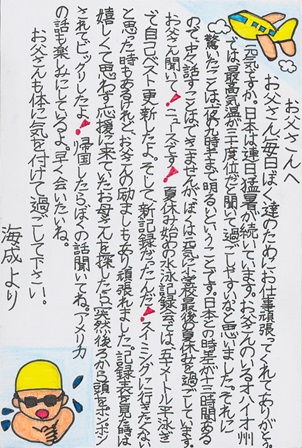 お父さんへ
お父さん毎日ぼく達のためにお仕事頑張ってくれてありがとう。
元気ですか。日本は連日猛暑が続いています。お父さんのいるオハイオ州
では最高気温が三十度位だと聞いて過ごしやすいなと思いました。それに
驚いたことは夜九時まで明るいということです。日本との時差が十三時間ある
ので中々話すことはできませんが、ぼくは元気に小学校最後の夏休みを過ごしています。
お父さん聞いて!ニュースです!夏休み始めの水泳記録会では、五十メートル平泳ぎ
で自己ベスト更新したよ。そして新記録だったんだ!スイミングに行きたくない
と思った時もあるけれど、お父さんの励ましもあり頑張れました。記録表を見た時は
嬉しくて思わず応援に来ていたお母さんを探したら突然後ろから頭をポンポン
されてビックリしたよ!帰国したらぼくの話聞いてね。アメリカ
の話も楽しみにしているよ。早く会いたいね。
お父さんも体に気を付けて過ごして下さい。
海成より